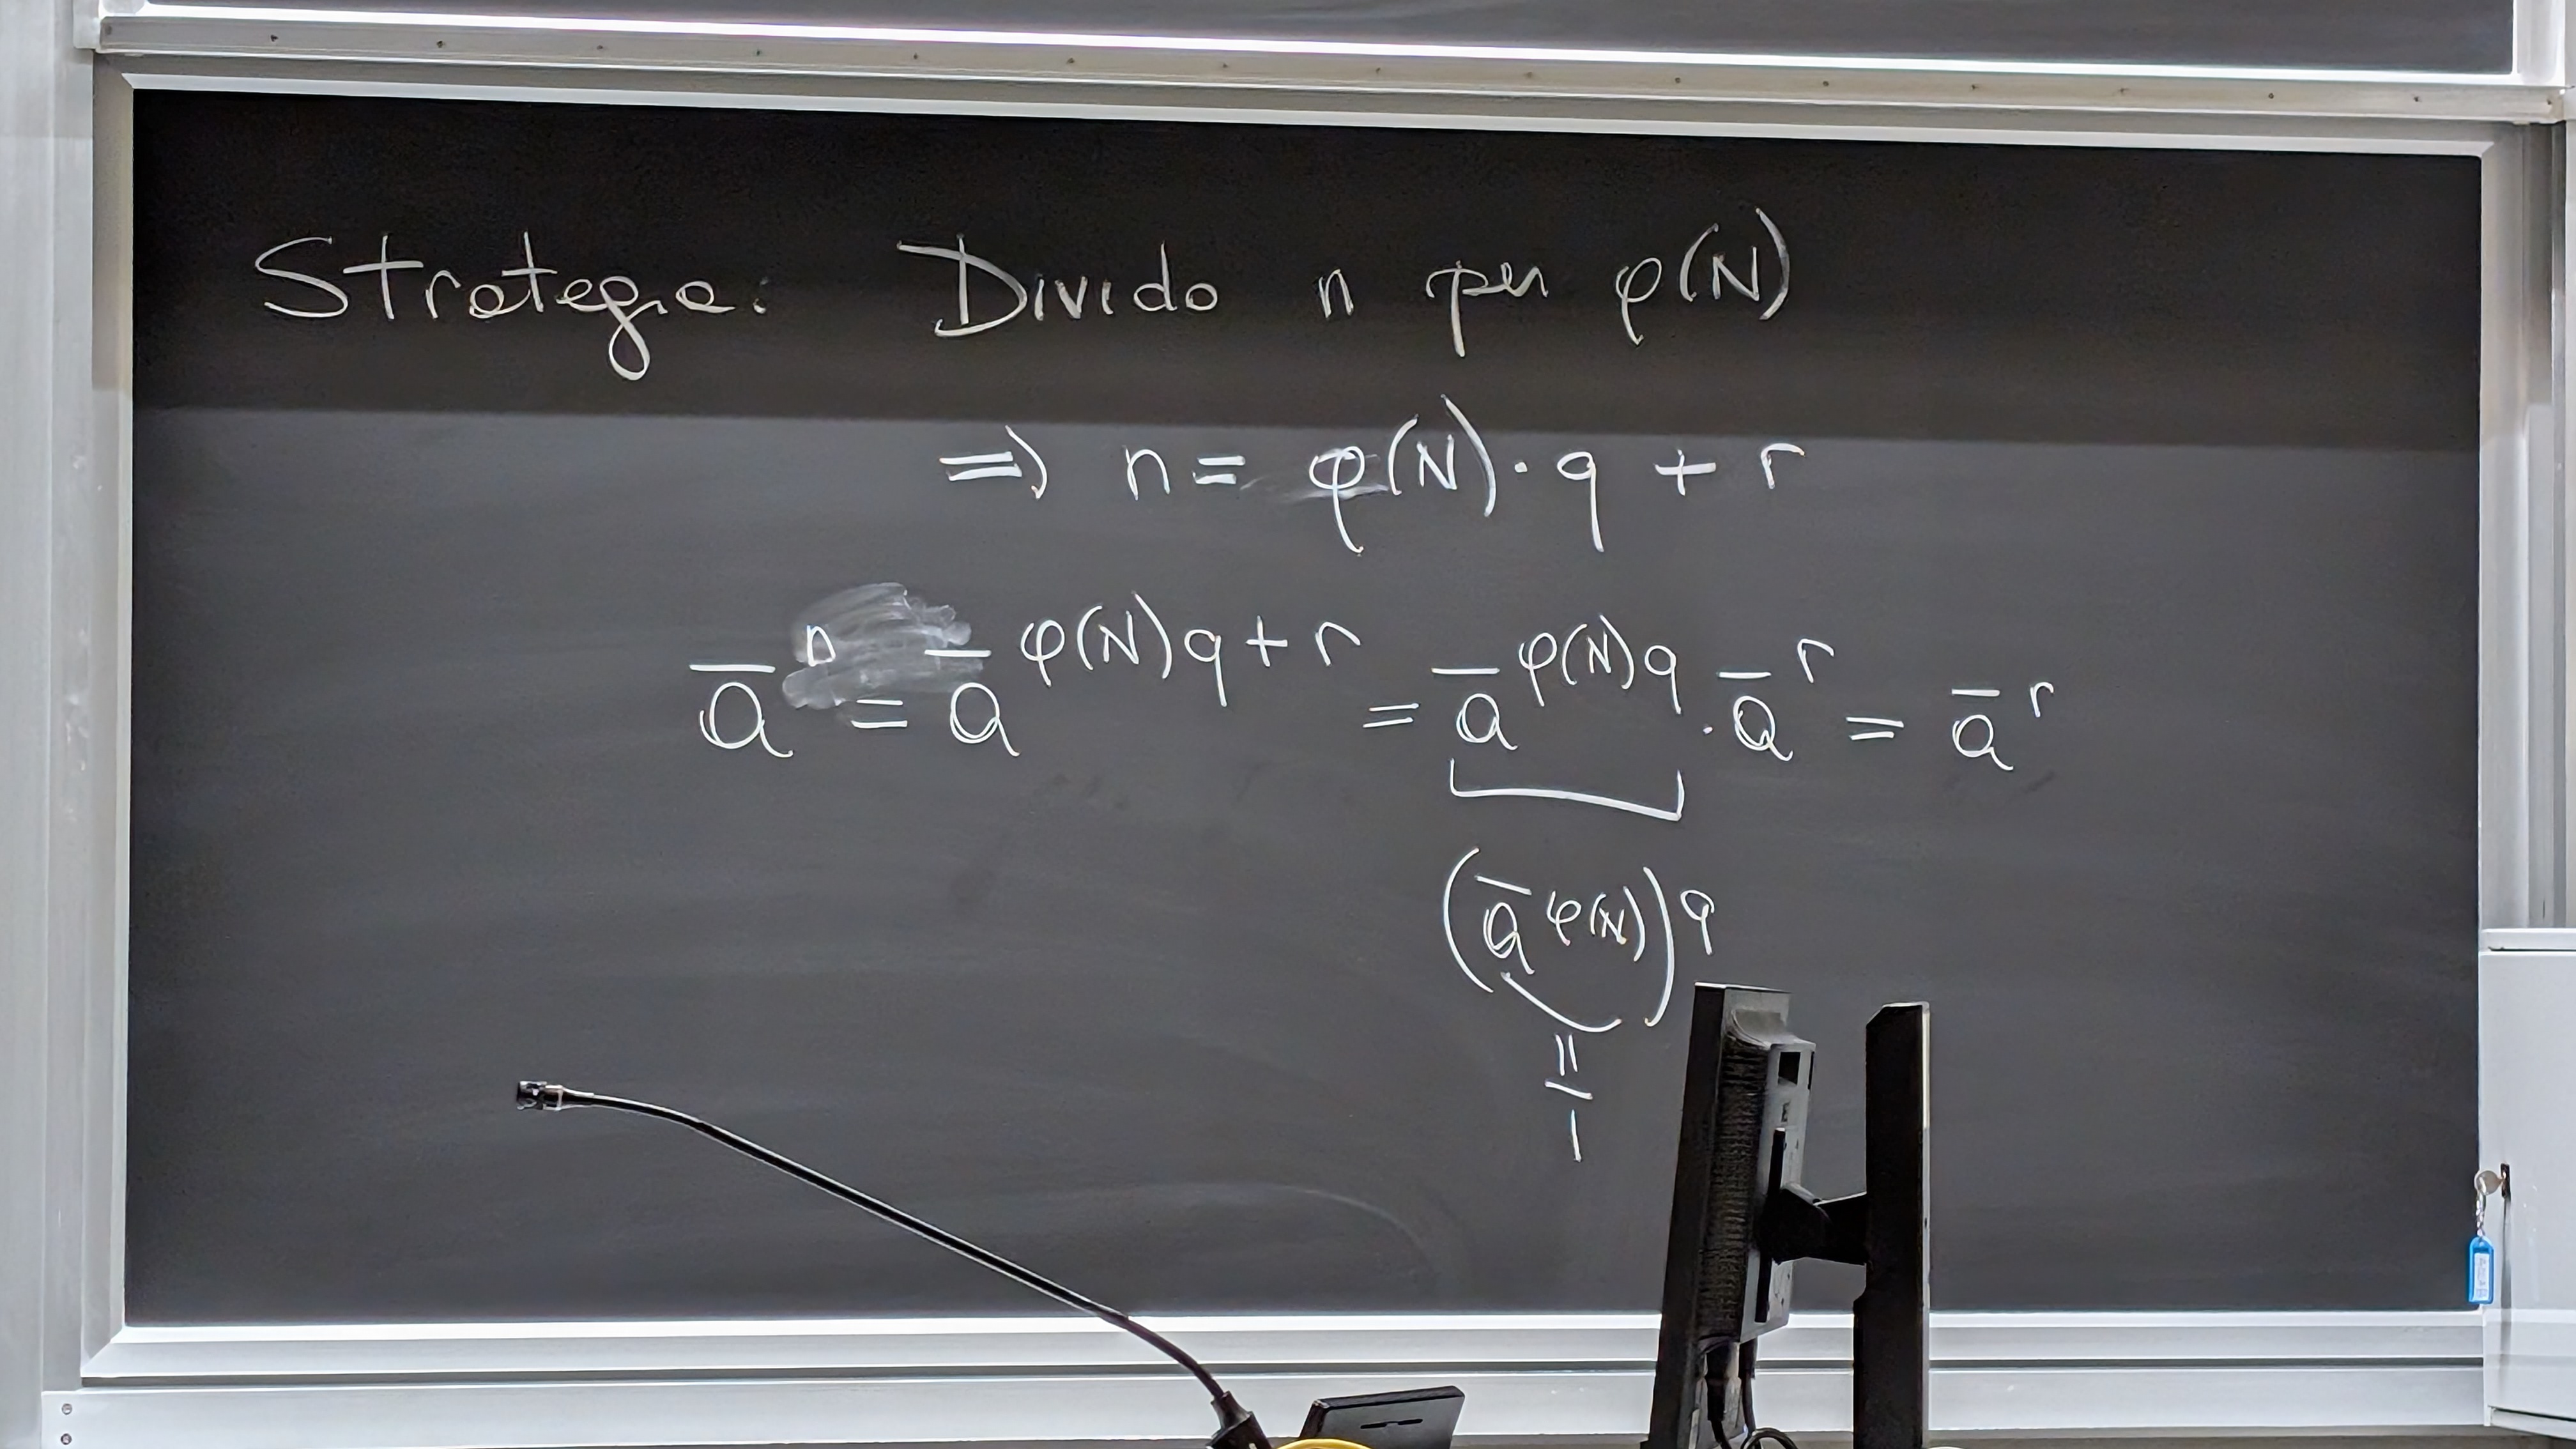 Strategia: Divido n per φ(N)
=> n = φ(N) · q + r
a̅ⁿ = a̅^φ(N)q + r = a̅^φ(N)q · a̅^r = a̅^r
(a̅^φ(N))^q
=
1̅